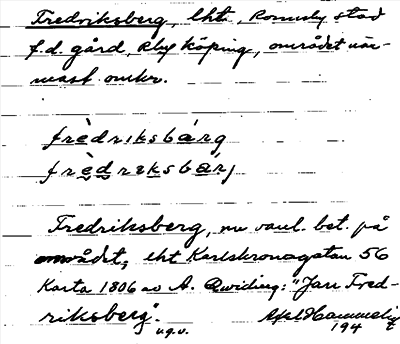 Fredriksberg, lht, Ronneby stad
f.d. gård, Blek köping, området när-
mast omkr.
frèdriksbárg
frèdreksbárj
Fredriksberg, nu vanl. bet. på
området, eht Karlskronagatan 56
Karta 1806 av A. Qwiding: "Jan Fred-
riksberg".
u.g.v. Axel Hammelin
194